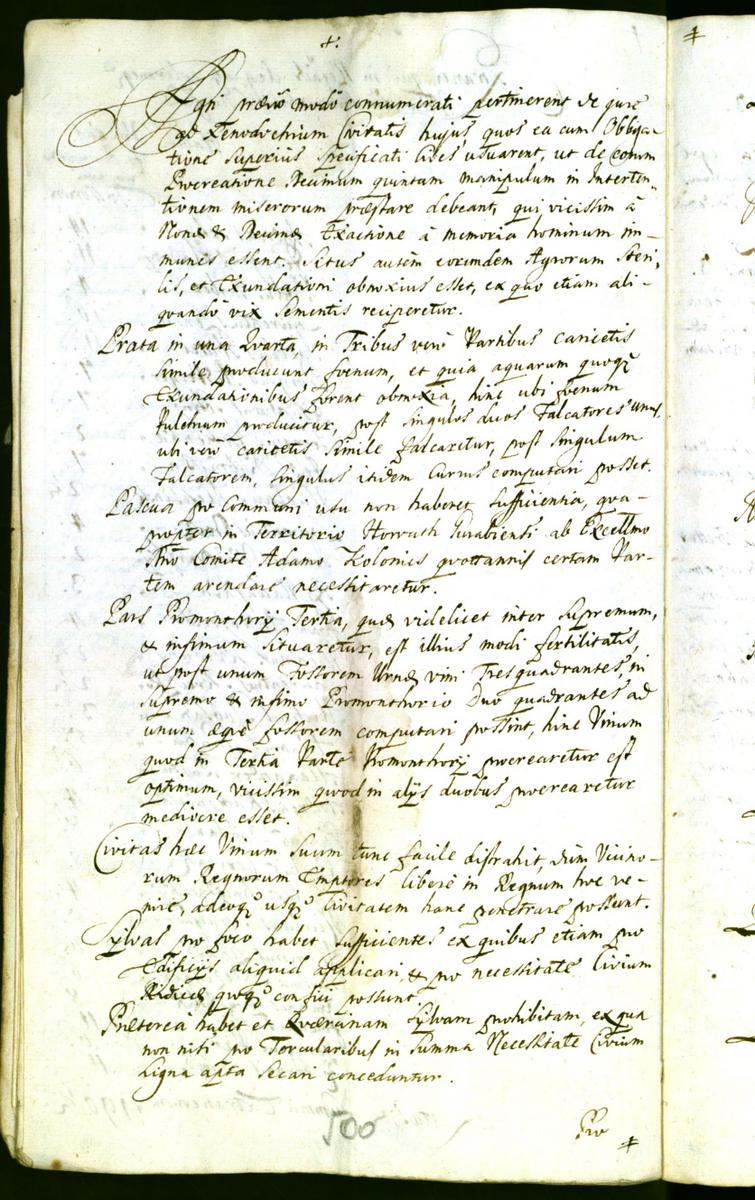 Agri prævio modo connumerati pertinerent de jure
ad Xenodochium Civitatis hujus, quos ea cum Obliga-
tione superius specificati Cives usuarent, ut de eorum
Procreatione Decimum quintam manipulum in Interten-
tionem miserorum præstare debeant, qui vicissim à
Nonæ & Decimæ Exactione à memoria hominum im-
munes essent. Situs autem eorumdem Agrorum steri-
lis, et Exundationi obnoxius esset, ex quo etiam ali-
quando vix Sementis reciperetur.
Prata in una Quarta, in Tribus verò Partibus caricetis
simile producunt foenum, et quia aquarum quoq́
Exundationibus forent obnoxia, hinc ubi foenum
Pulchrum producitur, post singulos duos Falcatores unus,
ubi verò caricetis simile falcaretur, post singulum
Falcatorem, singulus itidem Currus computari posset.
Pascua pro Communi usu non haberet sufficientia, qua-
propter in Territorio Horvath Gurabiensi ab Excellmo
Dno Comite Adamo Kolonics quottannis certam Par-
tem arendare necessitaretur.
Pars Promonthorij Tertia, quæ videlicet inter supremum,
& infimum situaretur, est illius modi fertilitatis,
ut post unum Fossorem Urnæ vini Tres quadrantes, in
supremo & infimo Promonthorio Duo quadrantes ad
unum æquè fossorem computari possint, hinc Vinum
quod in Tertia Parte Promonthorij procrearetur est
optimum, vicissim quod in alijs duobus procrearetur
mediocre esset.
Civitas hæc Vinum suum tunc facile distrahit, dum Vicino-
rum Regnorum Emptores liberè in Regnum hoc ve-
nire, adeoq́ usq́ Civitatem hanc penetrare possunt.
Sylvas pro foco habet sufficientes ex quibus etiam pro
Ædificijs aliquid applicari, & pro necessitate Civium
Ridicæ quoq́ confici possunt
Præterea habet et Quercinam Sylvam prohibitam, ex qua
non nisi pro Torcularibus in summa Necessitate Civium
Ligna apta secari conceduntur.
500
Pro